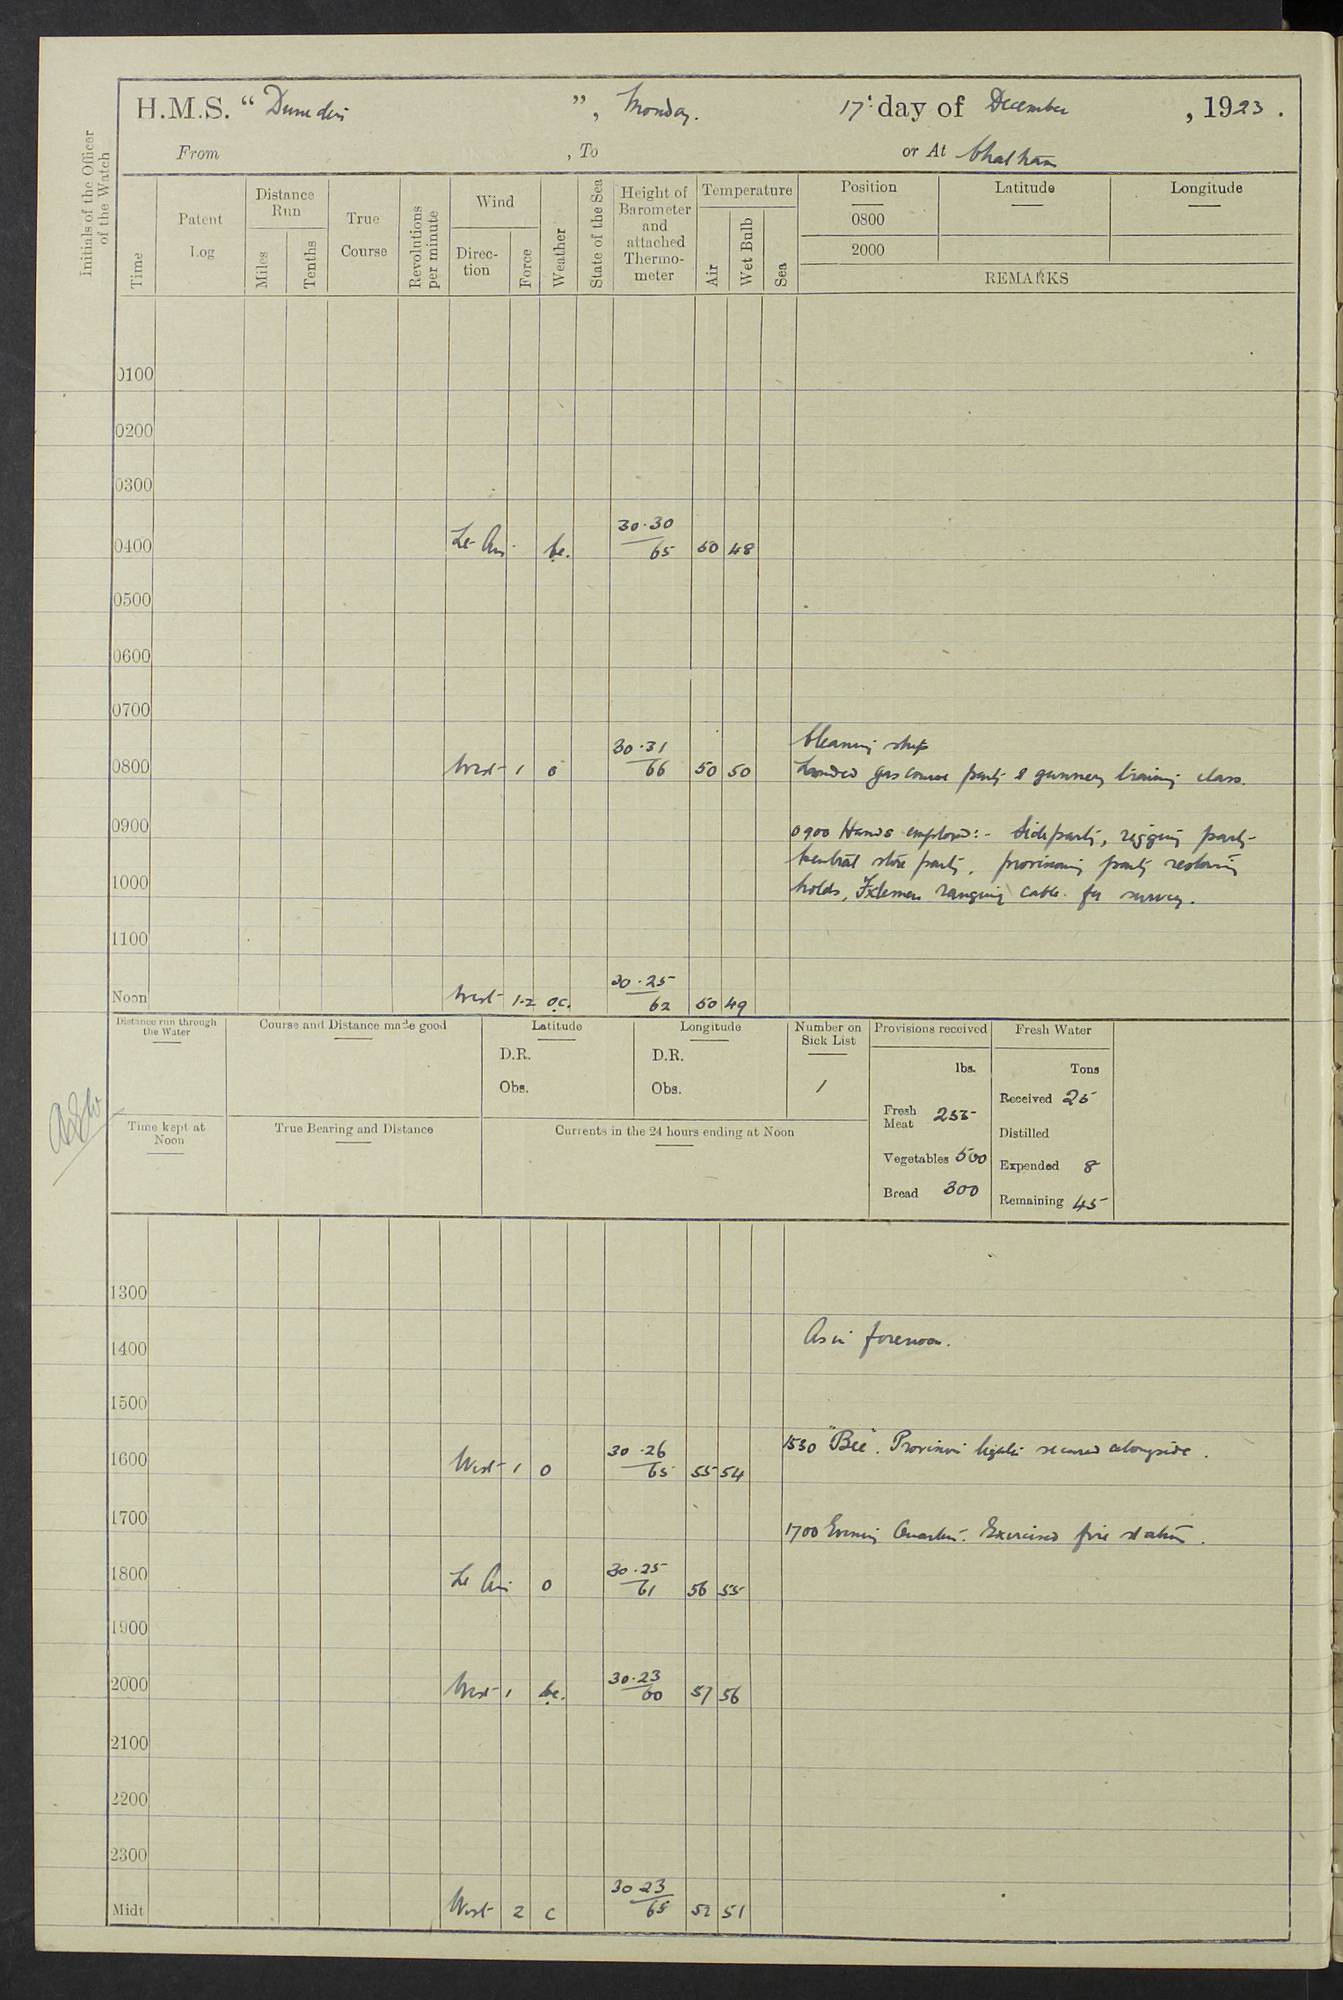 H.M.S. “ Dunedin ”, Monday. 17th day of December , 1923.
From , To or At Chatham
Initials of the Officer of the Watch
Time
Patent Log
Distance Run
Miles
Tenths
True Course
Revolutions per minute
Wind
Direction
Force
Weather
State of the Sea
Height of Barometer and attached Thermometer
Temperature
Air
Wet Bulb
Sea
Position
0800
2000
Latitude
Longitude
REMARKS
0100
0200
0300
0400 Lt Airs bc. 30.30 65 50 48
0500
0600
0700
Cleaning ship
0800 West 1 o 30.31 66 50 50 Landed gas course party & gunnery training class.
0900 0900 Hands employed:- Side party, rigging party
Central store party, provisioning party restowing
1000 holds, Fxlemen ranging cable for survey.
1100
Noon West 1-2 oc. 30.25 62 50 49
Distance run through the Water
Course and Distance made good
Latitude
D.R.
Obs.
Longitude
D.R.
Obs.
Number on Sick List
1
Provisions received
lbs.
Fresh Meat 255
Vegetables 500
Bread 300
Fresh Water
Tons
Received 25
Distilled
Expended 8
Remaining 45
Time kept at Noon
True Bearing and Distance
Currents in the 24 hours ending at Noon
1300
1400 As in forenoon.
1500
1530 "Bee". Provision lighter secured alongside.
1600 West 1 o 30.26 65 55 54
1700 1700 Evening Quarters. Exercised fire stations.
1800 Lt Airs o 30.25 61 56 55
1900
2000 West 1 bc. 30.23 60 57 56
2100
2200
2300
Midt West 2 c 30 23 65 52 51